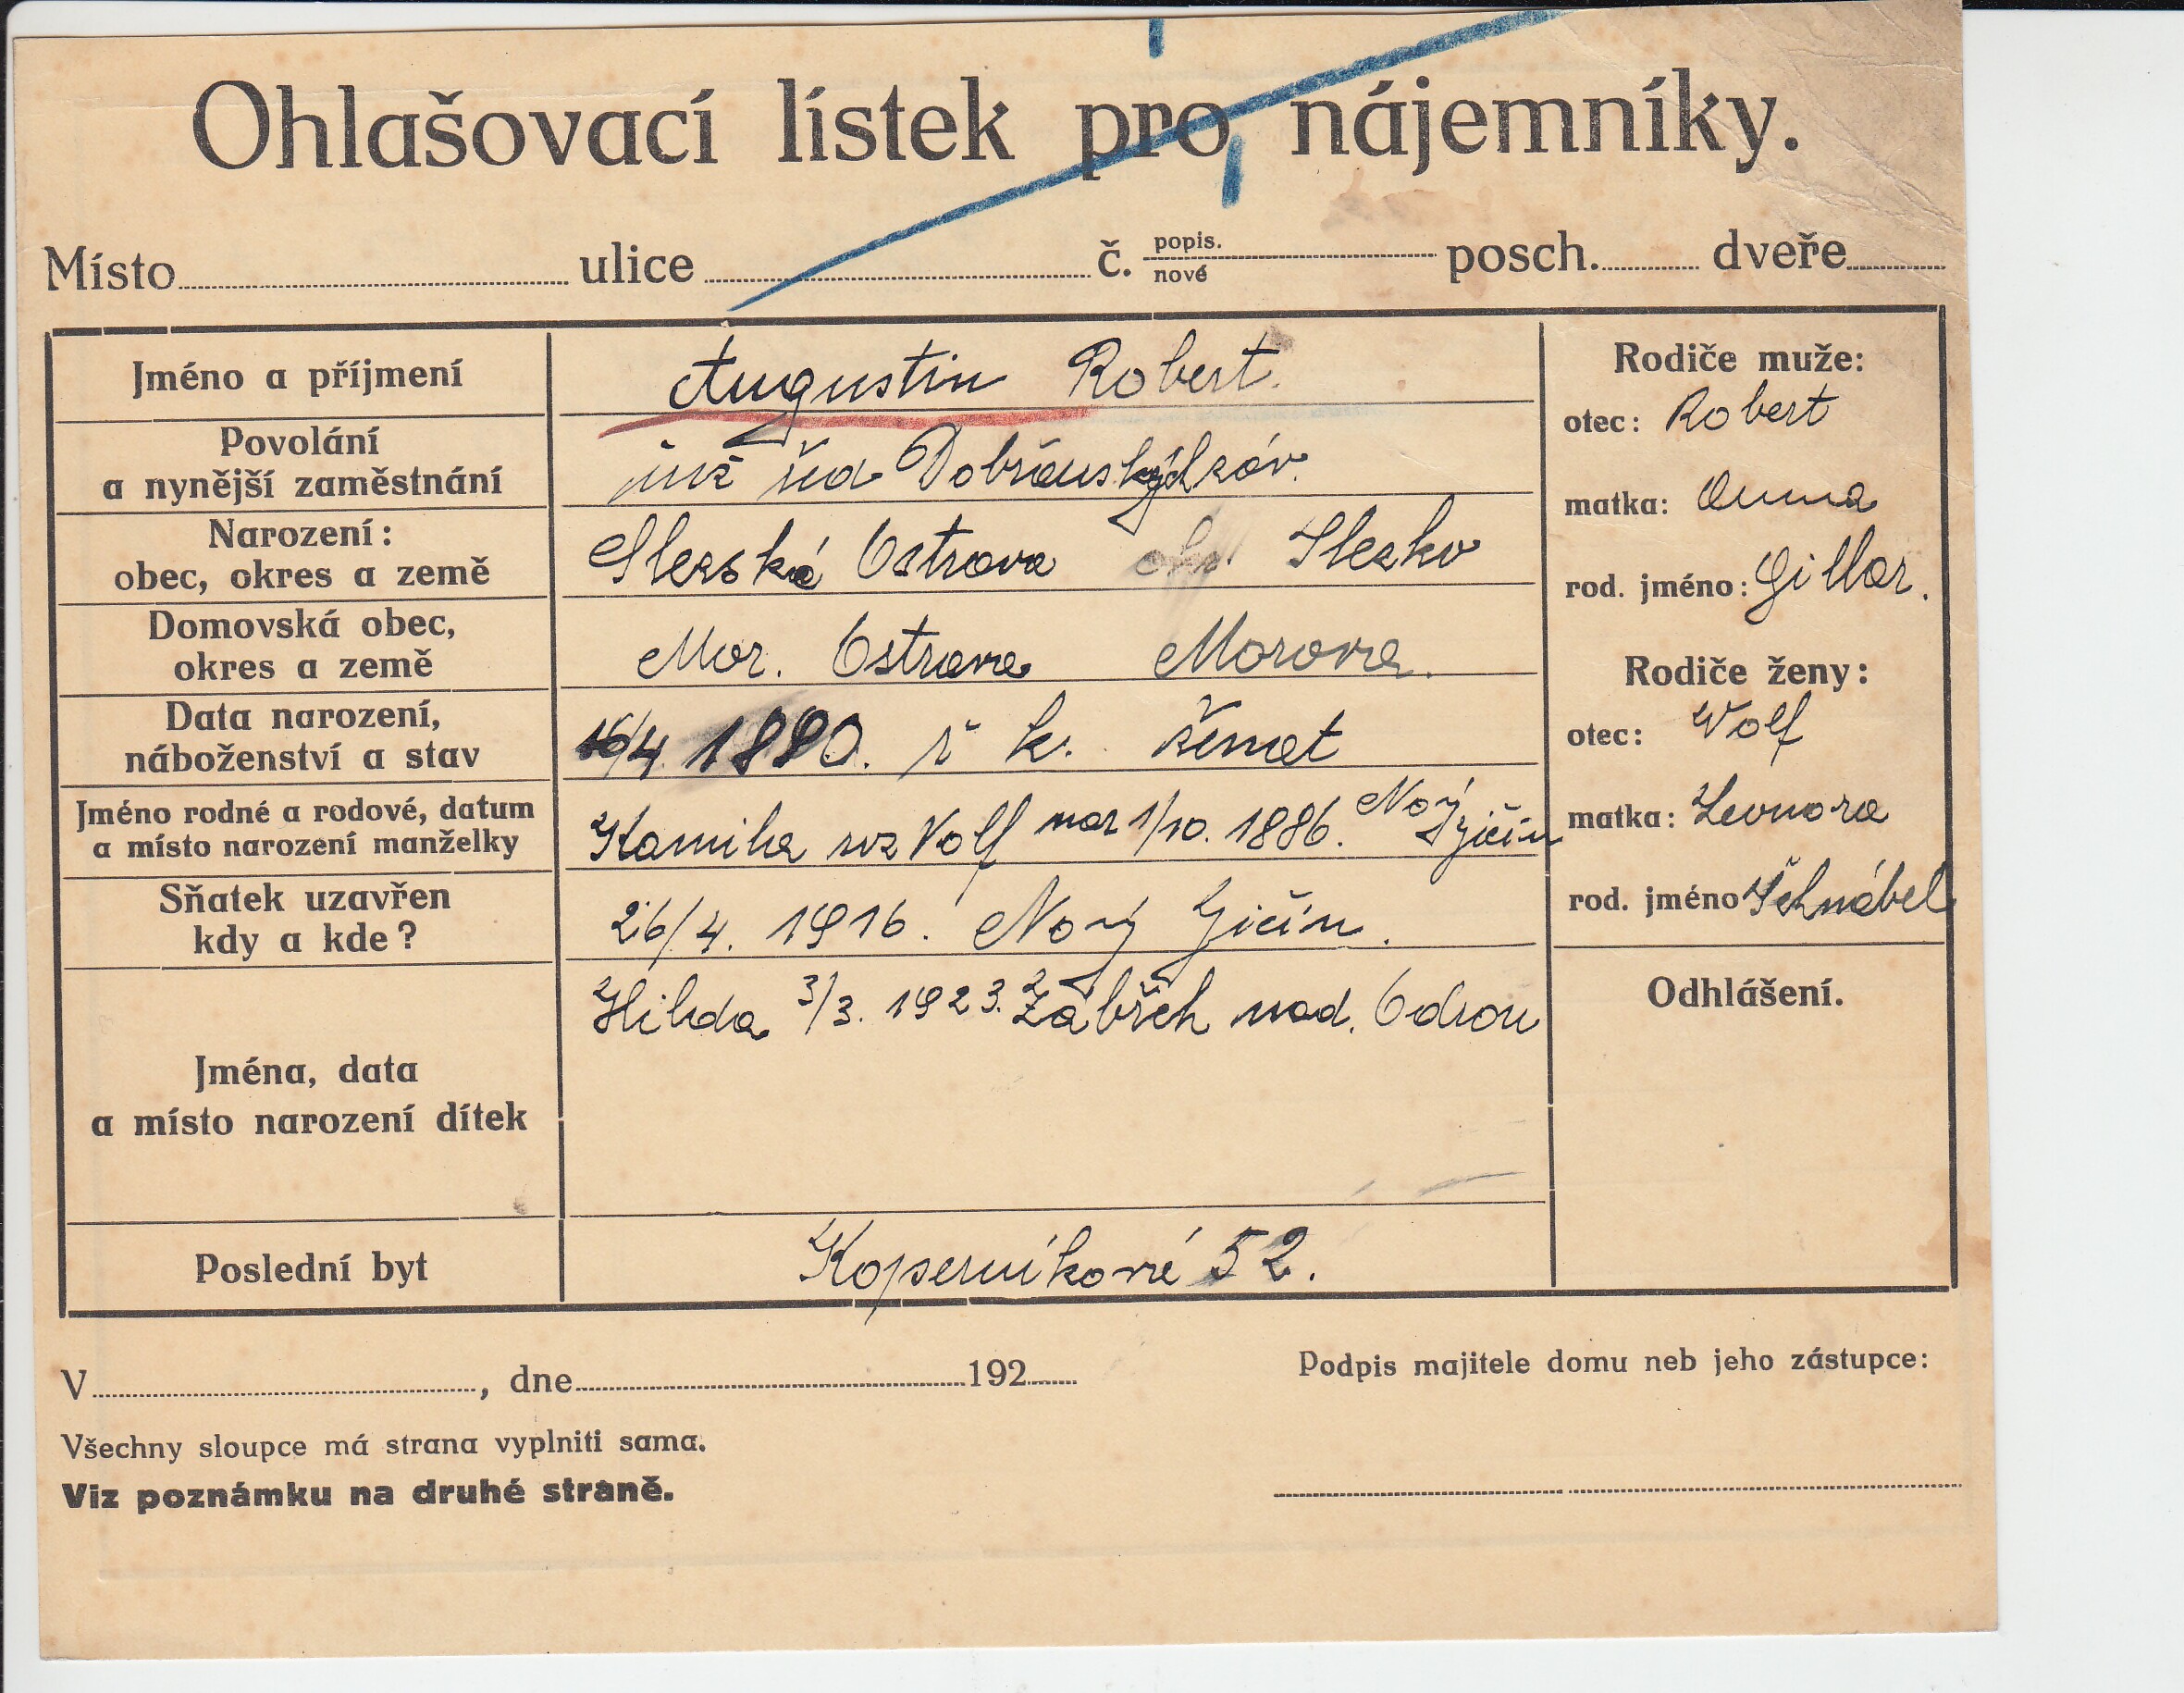 Ohlašovací lístek pro nájemníky.
Místo ulice č. popis. nové posch. dveře
Jméno a příjmení Augustin Robert.
Povolání
a nynější zaměstnání inž řed záv.
Narození:
obec, okres a země Slezská Ostrava Slezko
Domovská obec,
okres a země Mor. Ostrava Morava.
Data narození,
náboženství a stav 16/4 1880. ř k. ženat
Jméno rodné a rodové, datum
a místo narození manželky Kamila roz Volf nar 1/10. 1886. Nový Jičín
Sňatek uzavřen
kdy a kde? 26/4. 1916. Nový Jičín.
Jména, data
a místo narození dítek Hilda 3/3. 1923. Zábřeh nad. Odrou
Poslední byt Koperníkova 52.
Rodiče muže:
otec: Robert
matka: Anna
rod. jméno: Gillar.
Rodiče ženy:
otec: Wolf
matka: Leonora
rod. jméno Schnábel
Odhlášení.
V , dne 192
Podpis majitele domu neb jeho zástupce:
Všechny sloupce má strana vyplniti sama.
Viz poznámku na druhé straně.